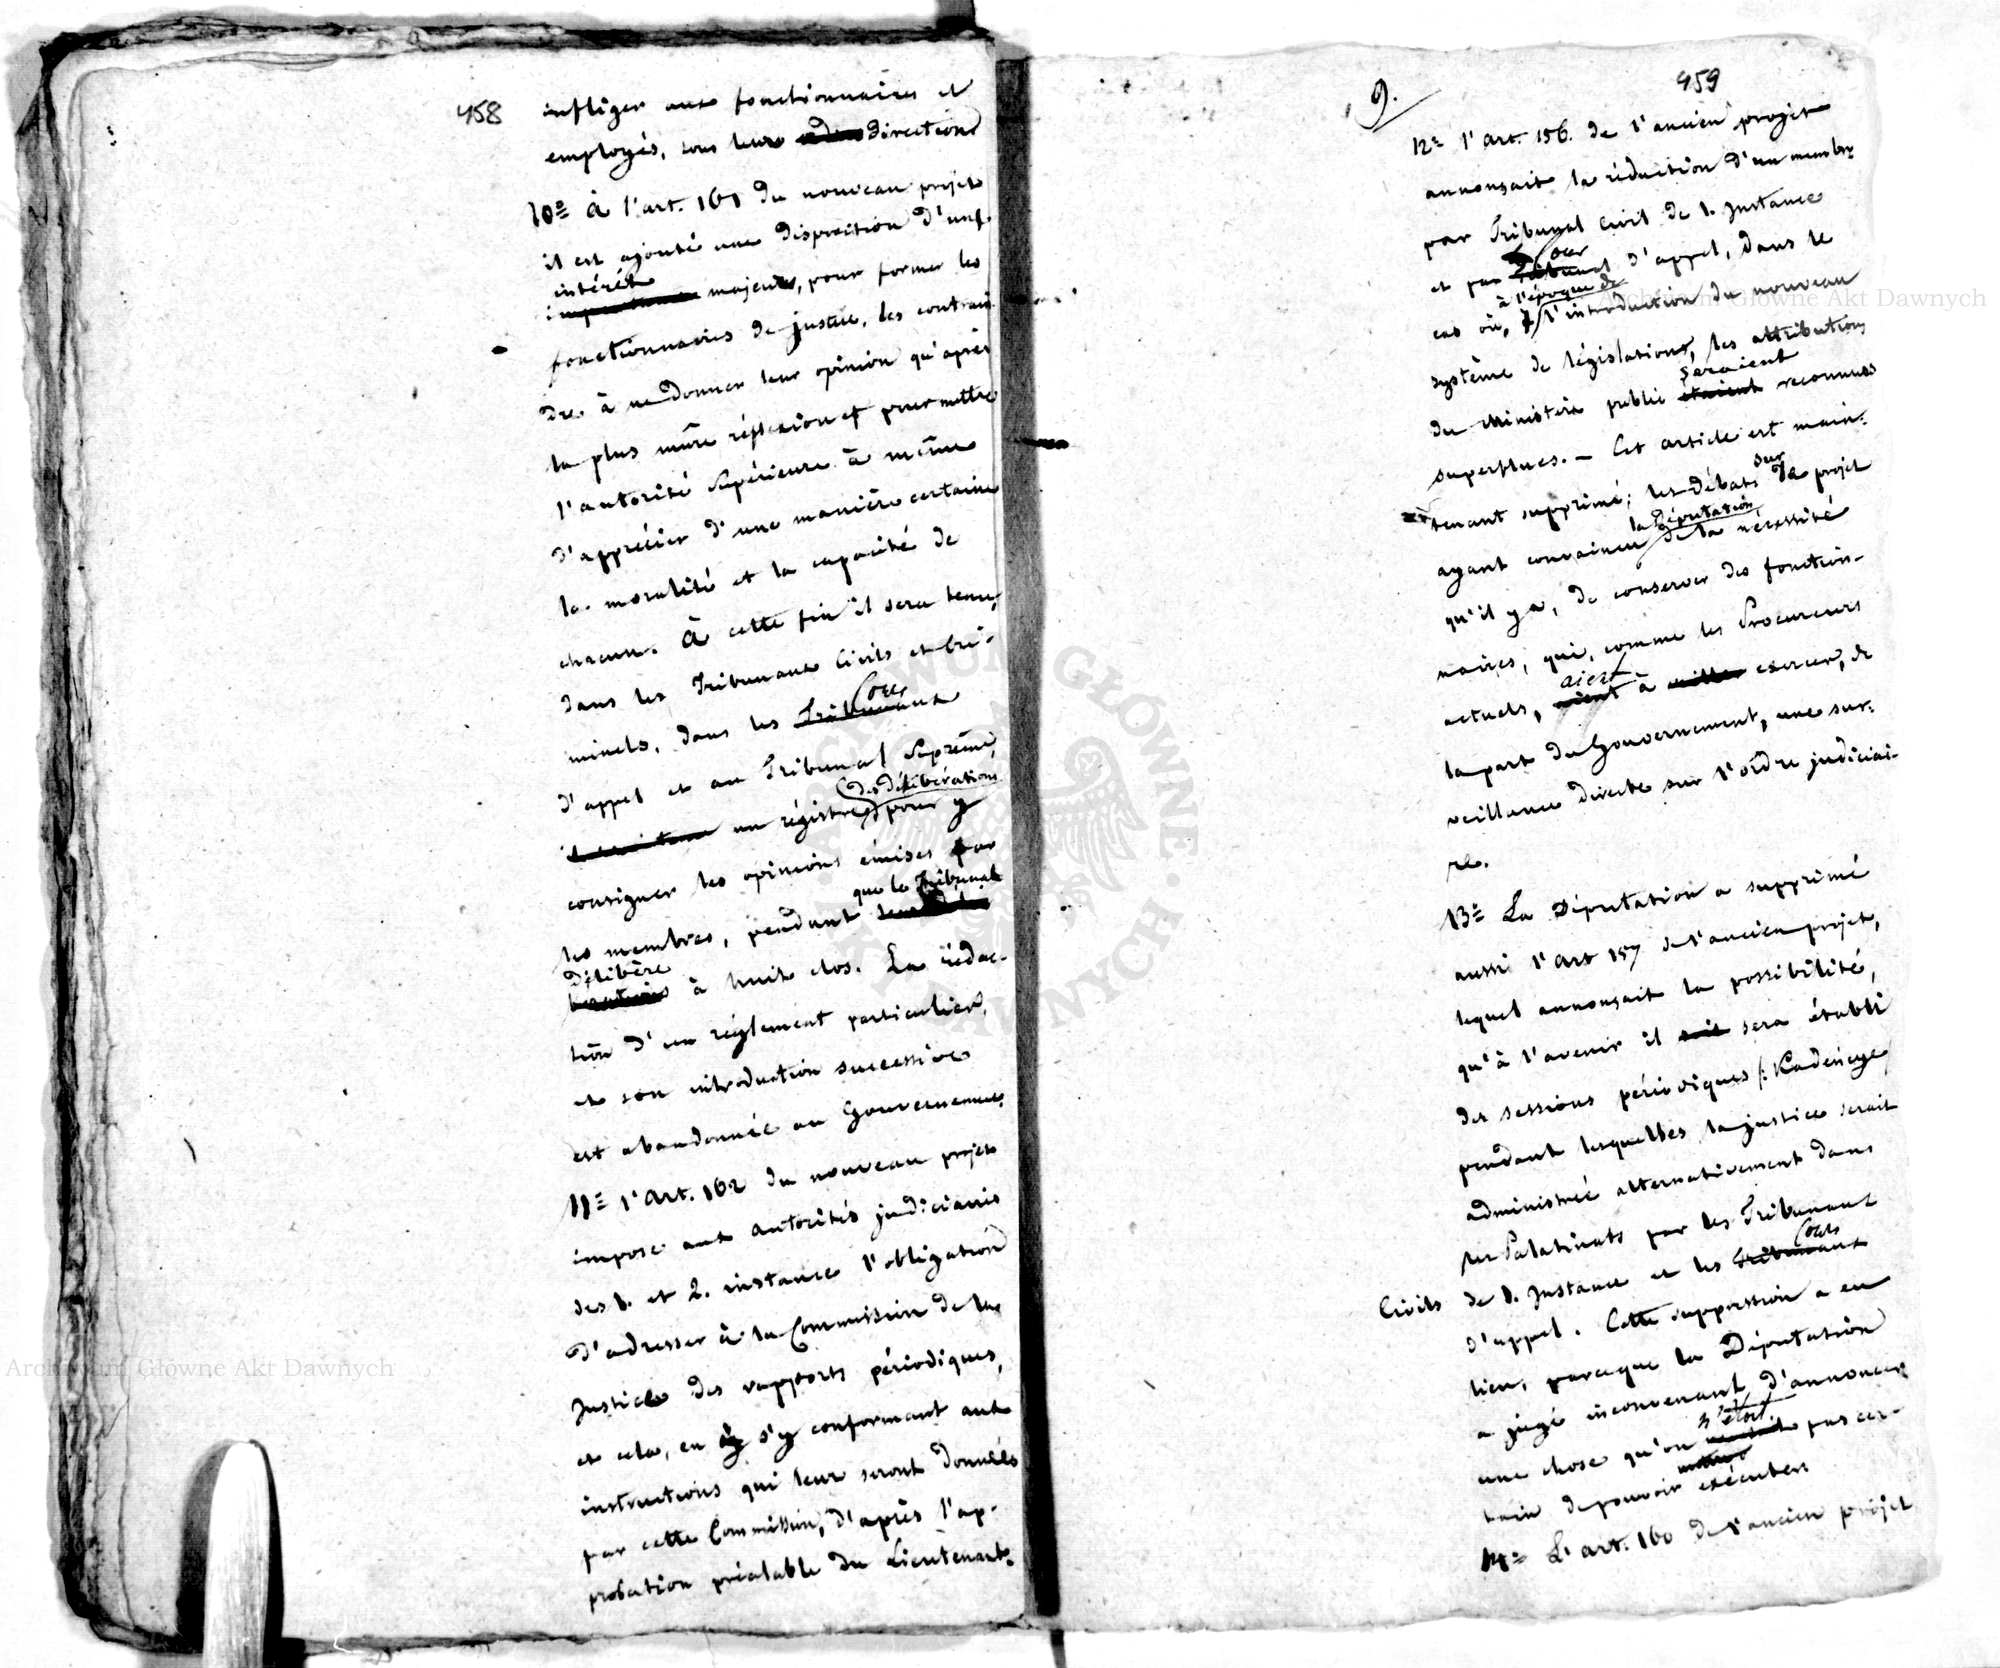 458
infliger aux fonctionnaires et
employés, sous leur direction
10° à l'art. 161 du nouveau projet
il est ajouté une disposition d'un
intérêt
importance majeur, pour former les
fonctionnaires de justice, les contrain
dre à ne donner leur opinion qu'après
la plus mûre réflexion et pour mettre
l'autorité supérieure à même
d'apprécier d'une manière certaine
la moralité et la capacité de
chacun. à cette fin il sera tenu,
dans les Tribunaux Civils et Cri-
minels, dans les Tribunaux Cours
d'appel et au Tribunal Suprême,
des délibérations
un régistre pour y
consigner les opinions émises par
que le Tribunal
les membres, pendant
délibère
à huit clos. La rédac-
tion d'un réglement particulier,
et son introduction successive
est abandonnée au Gouvernement.
11° l'art. 162 du nouveau projet
impose aux autorités judiciaires
des 1. et 2. instance l'obligation
d'adresser à la Commission de la
Justice des rapports périodiques,
et cela, en s'y conformant aux
instructions qui leur seront données
par cette Commission, d'après l'ap-
probation préalable du Lieutenant.
9.
459
12° l'art. 156. de l'ancien projet
annonsait la réduction d'un membre
par Tribunal Civil de 1. Instance
Cour
et par Tribunal d'appel, dans le
à l'époque de
cas où, l'introduction du nouveau
système de législation, les attributions
seraient
du Ministère public étaient reconnues
superflues. – Cet article est main-
sur
tenant supprimé; les débats le projet
la Députation
ayant convaincu de la nécessité
qu'il y a, de conserver des fonction-
naires, qui, comme les Procureurs
aient
actuels, aient à exercer, de
la part du Gouvernement, une sur-
veillance directe sur l'ordre judiciai-
re.
13° La Députation a supprimé
aussi l'art 157 de l'ancien projet,
lequel annonsait la possibilité,
qu'à l'avenir il soit sera établi
des sessions périodiques /: Kadencye
pendant lesquelles la justice serait
administrée alternativement dans
les Palatinats par les Tribunaux
Cours
Civils de 1. Instance et les Tribunaux
d'appel. Cette suppression a eu
lieu, parceque la Députation
a jugé inconvenant d'annoncer
n'étoit
une chose qu'on pas cer-
tain de pouvoir exécuter.
14° L'art. 160 de l'ancien projet
Archiwum Główne Akt Dawnych
Archiwum Główne Akt Dawnych
ARCHIWUM GŁÓWNE AKT DAWNYCH